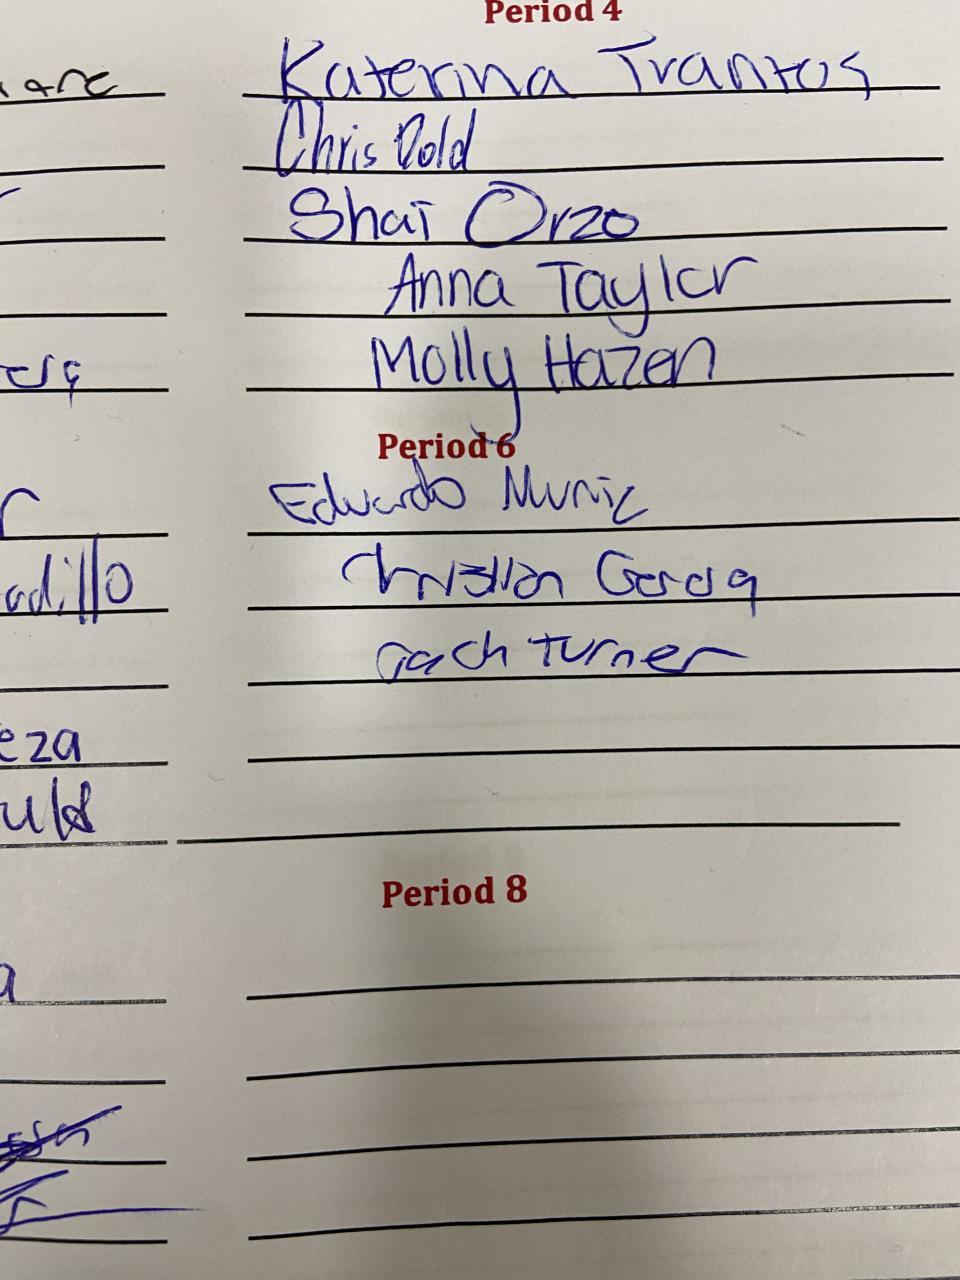 Period 4
Katerina Trantos
Chris Dold
Shai Orzo
Anna Taylor
Molly Hazen
Period 6
Eduardo Muniz
Christian Garcia
Zach Turner
adillo
eza
Period 8